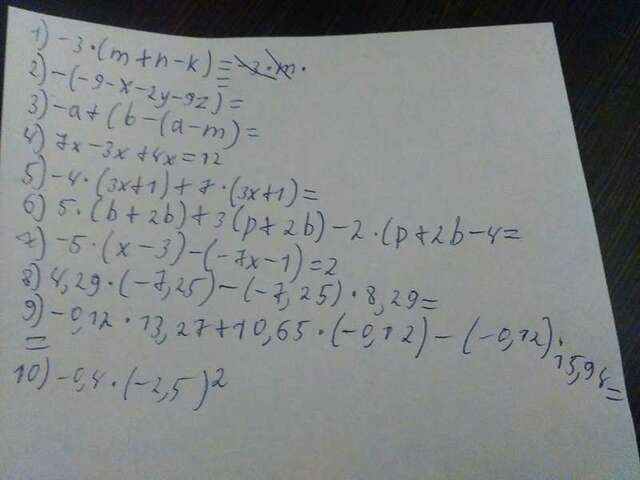 1) -3·(m+n-k)= -3·m·
2) -(-9-x-2y-9z)=
3) -a+(b-(a-m)=
4) 7x-3x+4x=12
5) -4·(3x+1)+7·(3x+1)=
6) 5·(b+2b)+3(p+2b)-2·(p+2b-4=
7) -5·(x-3)-(-7x-1)=2
8) 4,29·(-7,25)-(-7,25)·8,29=
9) -0,12·13,27+10,65·(-0,12)-(-0,12)·15,98=
=
10) -0,4·(-2,5)²